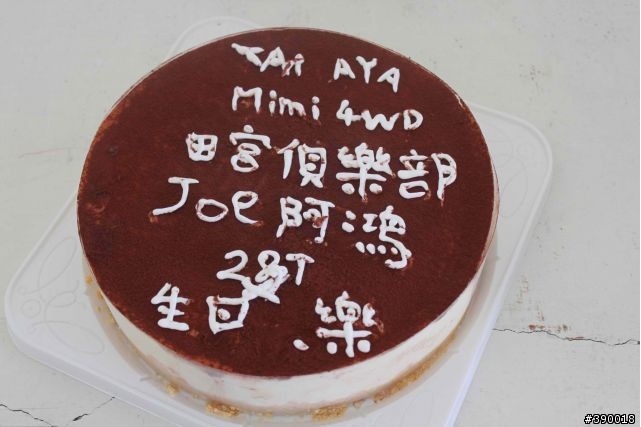 TAi AYA
Mimi 4WD
田宮俱樂部
Joe 阿鴻
28T
生日 樂
#390018